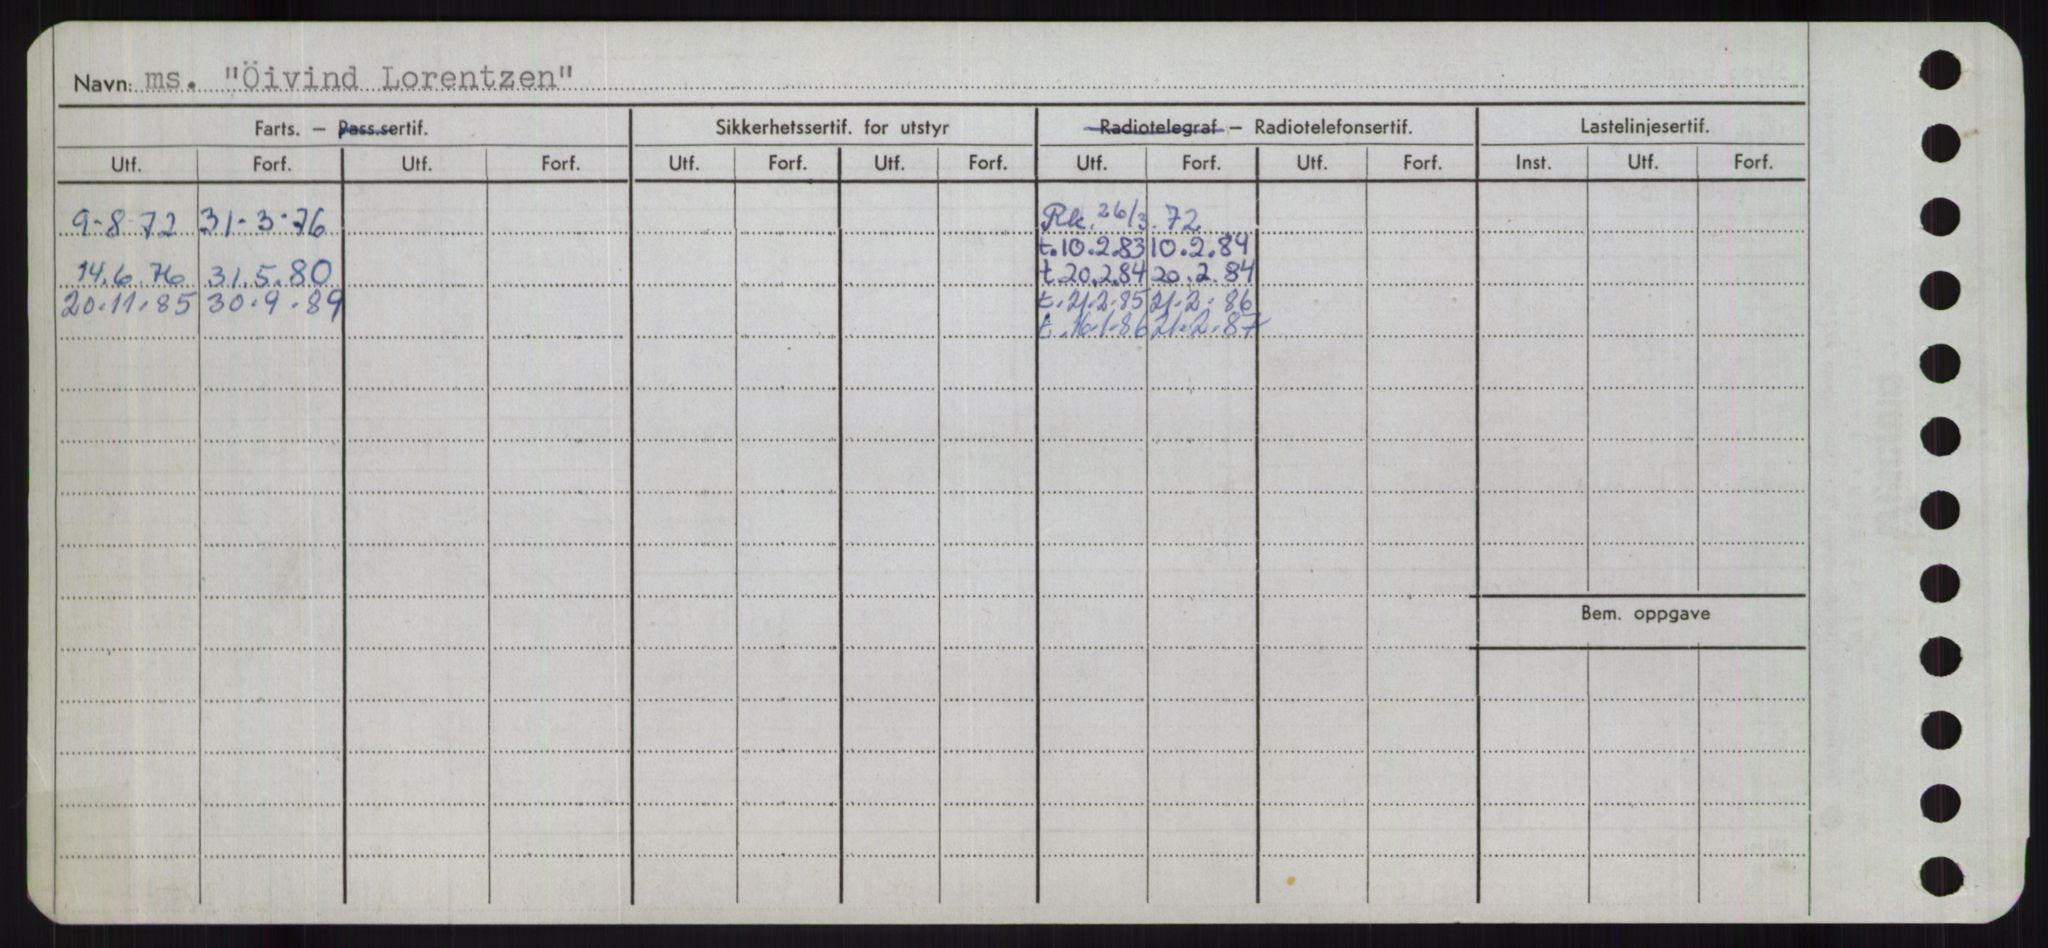 Navn: ms. "Öivind Lorentzen"
Farts. — Pass.sertif. Sikkerhetssertif. for utstyr Radiotelegraf — Radiotelefonsertif. Lastelinjesertif.
Utf. Forf. Utf. Forf. Utf. Forf. Utf. Forf. Utf. Forf. Utf. Forf. Inst. Utf. Forf.
9-8-72 31-3-76 Rk. 26/3.72
t.10.2.83 10.2.84
14.6.76 31.5.80 t.20.2.84 20.2.84
20.11.85 30.9.89 t.21.2.85 21.2.86
t.16.1.86 21.2.87
Bem. oppgave